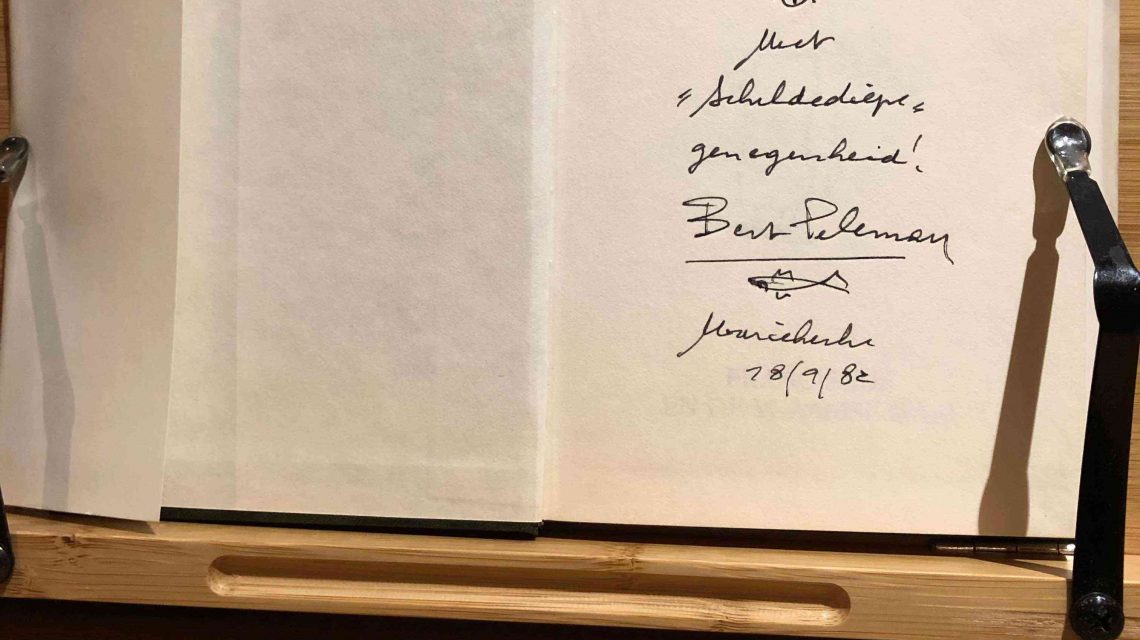 Met
"Scheldediepe"
genegenheid!
Bert Peleman
Mariekerke
18/9/82